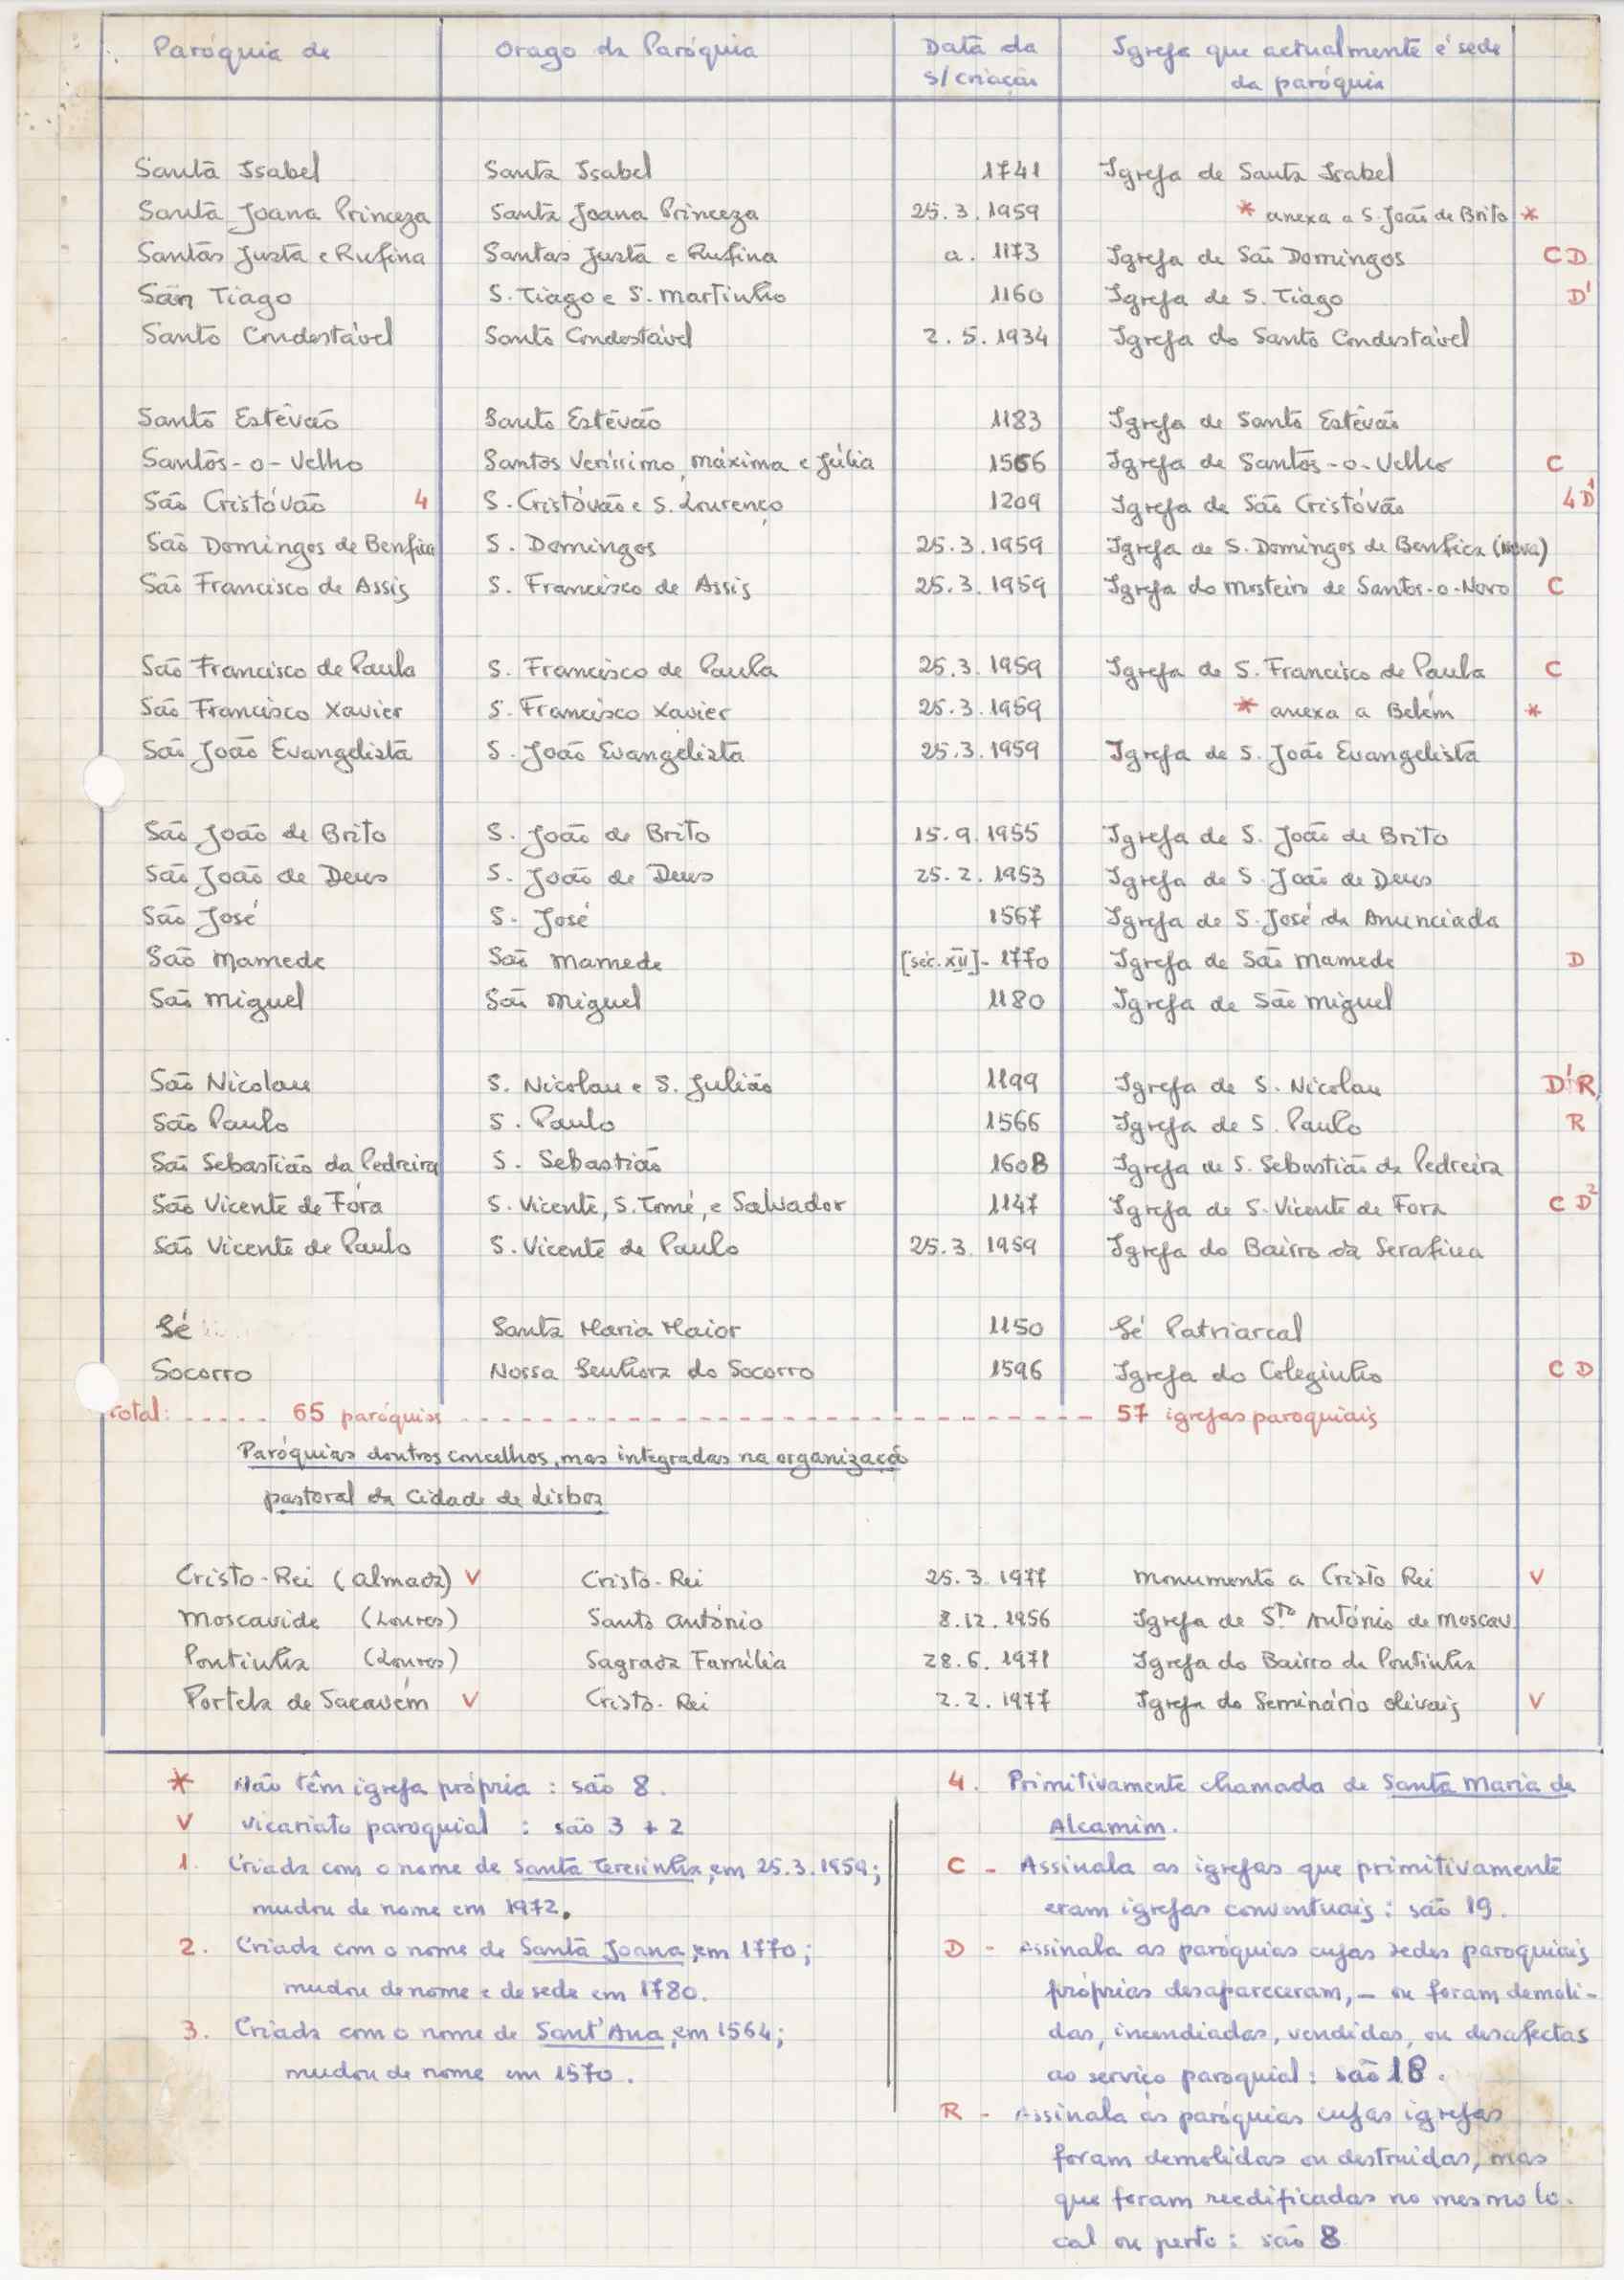 Paróquia de Orago da Paróquia Data da Igreja que actualmente é sede
s/criação da paróquia
Santa Isabel Santa Isabel 1741 Igreja de Santa Isabel
Santa Joana Princeza Santa Joana Princeza 25.3.1959 * anexa a S. João de Brito *
Santas Justa e Rufina Santas Justa e Rufina a. 1173 Igreja de São Domingos C D
San Tiago S. Tiago e S. Martinho 1160 Igreja de S. Tiago D¹
Santo Condestável Santo Condestável 2.5.1934 Igreja do Santo Condestável
Santo Estêvão Santo Estêvão 1183 Igreja de Santo Estêvão
Santos-o-Velho Santos Veríssimo, Máxima e Júlia 1566 Igreja de Santos-o-Velho C
São Cristóvão 4 S. Cristóvão e S. Lourenço 1209 Igreja de São Cristóvão 4 D¹
São Domingos de Benfica S. Domingos 25.3.1959 Igreja de S. Domingos de Benfica (Nova)
São Francisco de Assis S. Francisco de Assis 25.3.1959 Igreja do Mosteiro de Santos-o-Novo C
São Francisco de Paula S. Francisco de Paula 25.3.1959 Igreja de S. Francisco de Paula C
São Francisco Xavier S. Francisco Xavier 25.3.1959 * anexa a Belém *
São João Evangelista S. João Evangelista 25.3.1959 Igreja de S. João Evangelista
São João de Brito S. João de Brito 15.9.1955 Igreja de S. João de Brito
São João de Deus S. João de Deus 25.2.1953 Igreja de S. João de Deus
São José S. José 1567 Igreja de S. José da Anunciada
São Mamede São Mamede [séc. XII]- 1770 Igreja de São Mamede D
São Miguel São Miguel 1180 Igreja de São Miguel
São Nicolau S. Nicolau e S. Julião 1199 Igreja de S. Nicolau D¹ R
São Paulo S. Paulo 1566 Igreja de S. Paulo R
São Sebastião da Pedreira S. Sebastião 1608 Igreja de S. Sebastião da Pedreira
São Vicente de Fóra S. Vicente, S. Tomé, e Salvador 1147 Igreja de S. Vicente de Fora C D²
São Vicente de Paulo S. Vicente de Paulo 25.3.1959 Igreja do Bairro da Serafina
Sé Santa Maria Maior 1150 Sé Patriarcal
Socorro Nossa Senhora do Socorro 1596 Igreja do Coleginho C D
Total: ..... 65 paróquias ..... 57 igrejas paroquiais
Paróquias doutros concelhos, mas integradas na organização
pastoral da Cidade de Lisboa
Cristo-Rei (Almada) V Cristo-Rei 25.3.1977 Monumento a Cristo Rei V
Moscavide (Loures) Santo António 8.12.1956 Igreja de Stº António de Moscav.
Pontinha (Loures) Sagrada Família 28.6.1971 Igreja do Bairro da Pontinha
Portela de Sacavém V Cristo-Rei 2.2.1977 Igreja do Seminário Olivais V
* Não têm igreja própria : são 8.
V Vicariato paroquial : são 3 + 2
1. Criada com o nome de Santa Teresinha, em 25.3.1959;
mudou de nome em 1972.
2. Criada com o nome de Santa Joana, em 1770;
mudou de nome e de sede em 1780.
3. Criada com o nome de Sant'Ana, em 1564;
mudou de nome em 1570.
4. Primitivamente chamada de Santa Maria de
Alcamim.
C - Assinala as igrejas que primitivamente
eram igrejas conventuais : são 19.
D - Assinala as paróquias cujas sedes paroquiais
próprias desapareceram, - ou foram demoli-
das, incendiadas, vendidas, ou desafectas
ao serviço paroquial : são 18.
R - Assinala as paróquias cujas igrejas
foram demolidas ou destruidas, mas
que foram reedificadas no mesmo lo-
cal ou perto : são 8